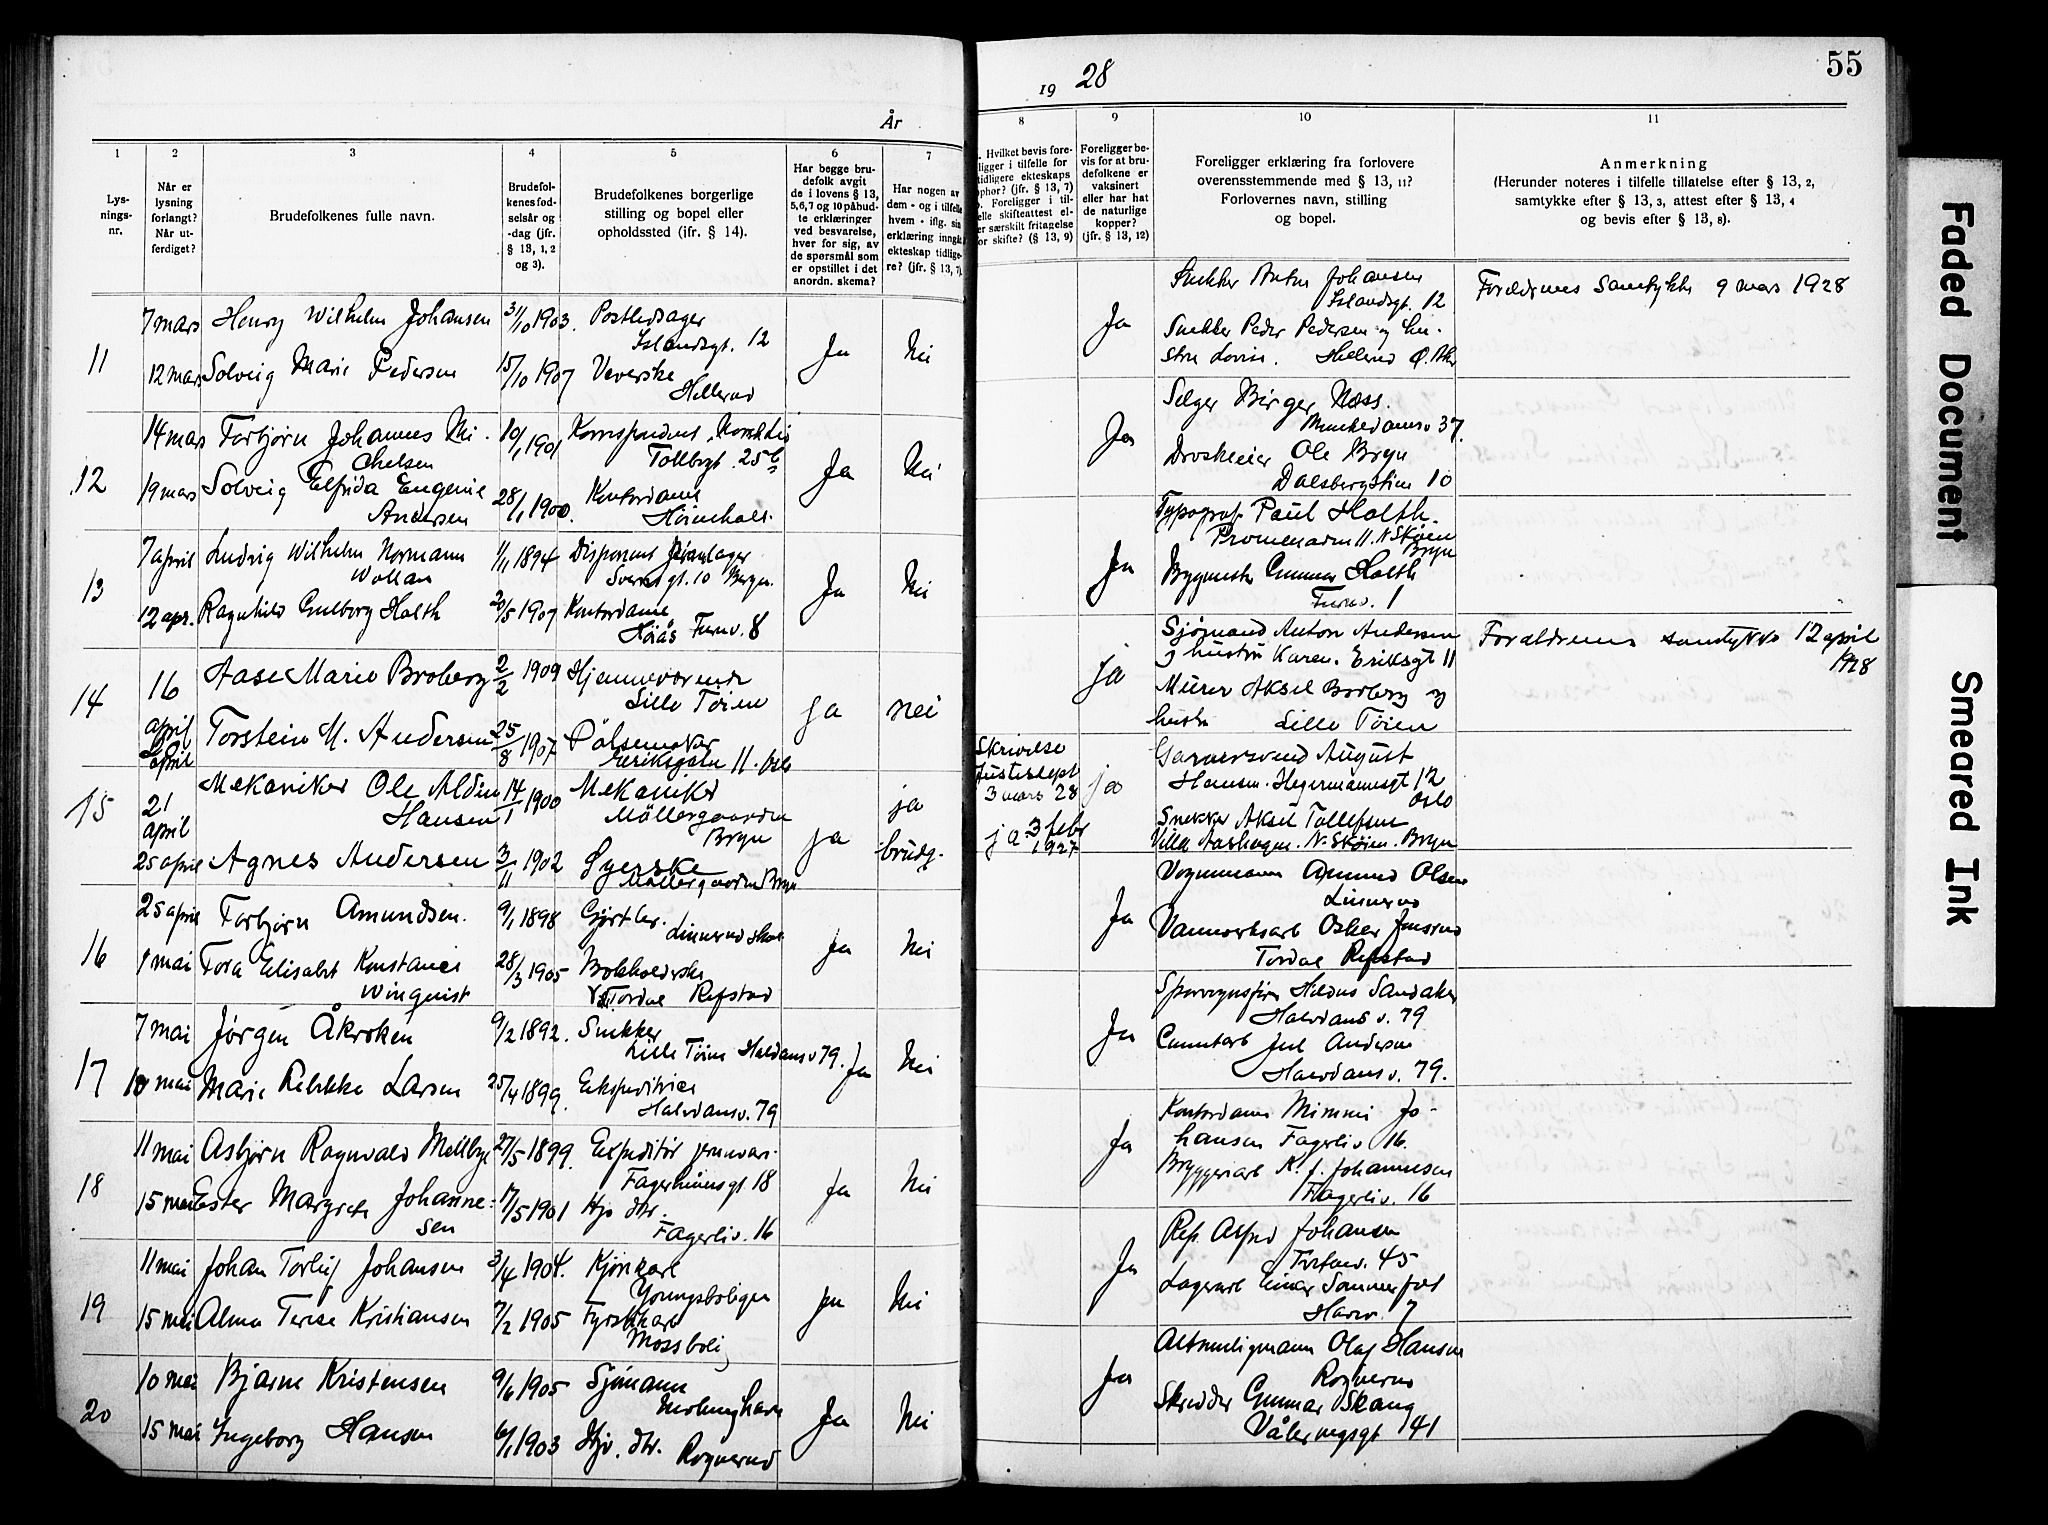 55
År
19 28
1
Lys-
nings-
nr.
2
Når er
lysning
forlangt?
Når ut-
ferdiget?
3
Brudefolkenes fulle navn.
4
Brudefol-
kenes fød-
selsår og
-dag (jfr.
§ 13, 1, 2
og 3).
5
Brudefolkenes borgerlige
stilling og bopel eller
opholdssted (ifr. § 14).
6
Har begge bru-
defolk avgit
de i lovens § 13,
5,6,7 og 10 påbud-
te erklæringer
ved besvarelse,
hver for sig, av
de spørsmål som
er opstillet i det
anordn. skema?
7
Har nogen av
dem - og i tilfelle
hvem - iflg. sin
erklæring inngått
ekteskap tidlige-
re? (jfr. § 13, 7)
8
. Hvilket bevis fore-
ligger i tilfelle for
tidligere ekteskaps
ophør? (jfr. § 13, 7)
. Foreligger i til-
felle skifteattest el-
er særskilt fritagelse
for skifte? (§ 13, 9)
9
Foreligger be-
vis for at bru-
defolkene er
vaksinert
eller har hat
de naturlige
kopper?
(jfr. § 13, 12)
10
Foreligger erklæring fra forlovere
overensstemmende med § 13, 11?
Forlovernes navn, stilling
og bopel.
11
Anmerkning
(Herunder noteres i tilfelle tillatelse efter § 13, 2,
samtykke efter § 13, 3, attest efter § 13, 4
og bevis efter § 13, 8).
11
7 mars Henry Wilhelm Johansen 3/10 1903. Postledsager
Islandsgt. 12
12 mars Solveig Marie Pedersen 15/10 1907 Veverske
Hellerud
Ja Nei
Ja
Snekker Anton Johansen
Islandsgt. 12
Snekker Peder Pedersen og hu-
stru Lovise. Hellerud Ø. Aker
Forældrenes Samtykke 9 mars 1928
12
14 mars Torbjørn Johannes Mi-
chelsen 10/1 1901 Korrespondent
Tollbgt. 25 b
19 mars Solveig Elfrida Eugenie
Andersen 28/1 1900. Kontordame
Ja Nei
Ja
Selger Birger Næss.
Munkedamsv 37.
Droskeeier Ole Bryn
Dalsbergstien 10
13
7 april Ludvig Wilhelm Normann
Wollan 1/1 1894 Disponent
Sverresgt. 10 Bergen
12 apr. Ragnhild Gulborg Holth 20/5 1907 Kontordame
Høiås Furuv. 8
Ja Nei
Ja
Typograf Paul Holth.
Promenaden 11. N Skøien
Bryn
Bygmester Gunnar Holth
Furuv. 1
14
16
april Aase Marie Broberg 2/2 1909 Hjemmeværende
Lille Tøien
april Torstein M. Andersen 25/8 1907 Pølsemaker
Eriksgaten 11. Oslo
ja nei
ja
Sjømand Anton Andersen
og hustru Karen. Eriksgt 11
Murer Aksel Broberg og
hustru Lille Tøien
Forældrenes samtykke 12 april
1928
15
21
april Mekaniker Ole Aldin
Hansen 14/1 1900 Mekaniker
Möllergaarden
Bryn
25 april Agnes Andersen 3/11 1902 Syerske
Möllergaarden Bryn
ja ja
brudg.
Skrivelse
Justisdept
3 mars 28
ja 3 febr
1927
ja
Garversvend August
Hansen. Hegermannsgt 12
Oslo
Snekker Aksel Tollefsen
Villa Aashaugen. N. Skøien. Bryn
16
25 april Torbjørn Amundsen. 9/1 1898 Gjørtler.
Linnerud skole
1 mai Tora Elisabet Konstanse
Winquist 28/3 1905 Bokholderske
Tordal Refstad
Ja Nei
Ja
Vognmann Amund Olsen
Linnerud
Vannverksarb Oskar Jensrud
Tordal Refstad
17
7 mai Jørgen Åkroken 9/2 1892. Snekker
Lille Tøien Haldansv 79.
10 mai Marie Rebekke Larsen 25/4 1899. Ekspeditrise
Halvdansv. 79
Ja Nei
Ja
Sporvognsfører Haldus Sandaker
Halvdans v. 79
Cementarb Juel Andersen
Halvdansv. 79.
18
11 mai Asbjørn Ragnvald Mellbye 27/5 1899. Expeditør jernvar.
Fagerheimsgt 18
15 mai Ester Margrete Johanne-
sen 17/5 1901 Hjv dtr.
Fagerliv. 16
Ja Nei
Ja
Kontordame Mimmi Jo-
hansen Fagerliv 16.
Bryggeriarb K. J. Johannesen
Fagerliv. 16
19
11 mai Johan Torleif Johansen 3/4 1904. Kjørekarl
Youngsboligen
15 mai Alma Terese Kristiansen 7/2 1905
Mossboli
Ja Nei
Ja
Rep. Alfred Johansen
45
Lagerarb Einar Sommerfelt
7
20
10 mai Bjarne Kristensen 9/6 1905 Sjømann
15 mai Ingeborg Hansen 6/1 1903 Hjv. dtr.
Rognerud
Ja Nei
Ja
Altmuligmann Olaf Hansen
Rognerud
Skredder Gunnar Skaug
Vålerengsgt 41
Faded Document
Smeared Ink